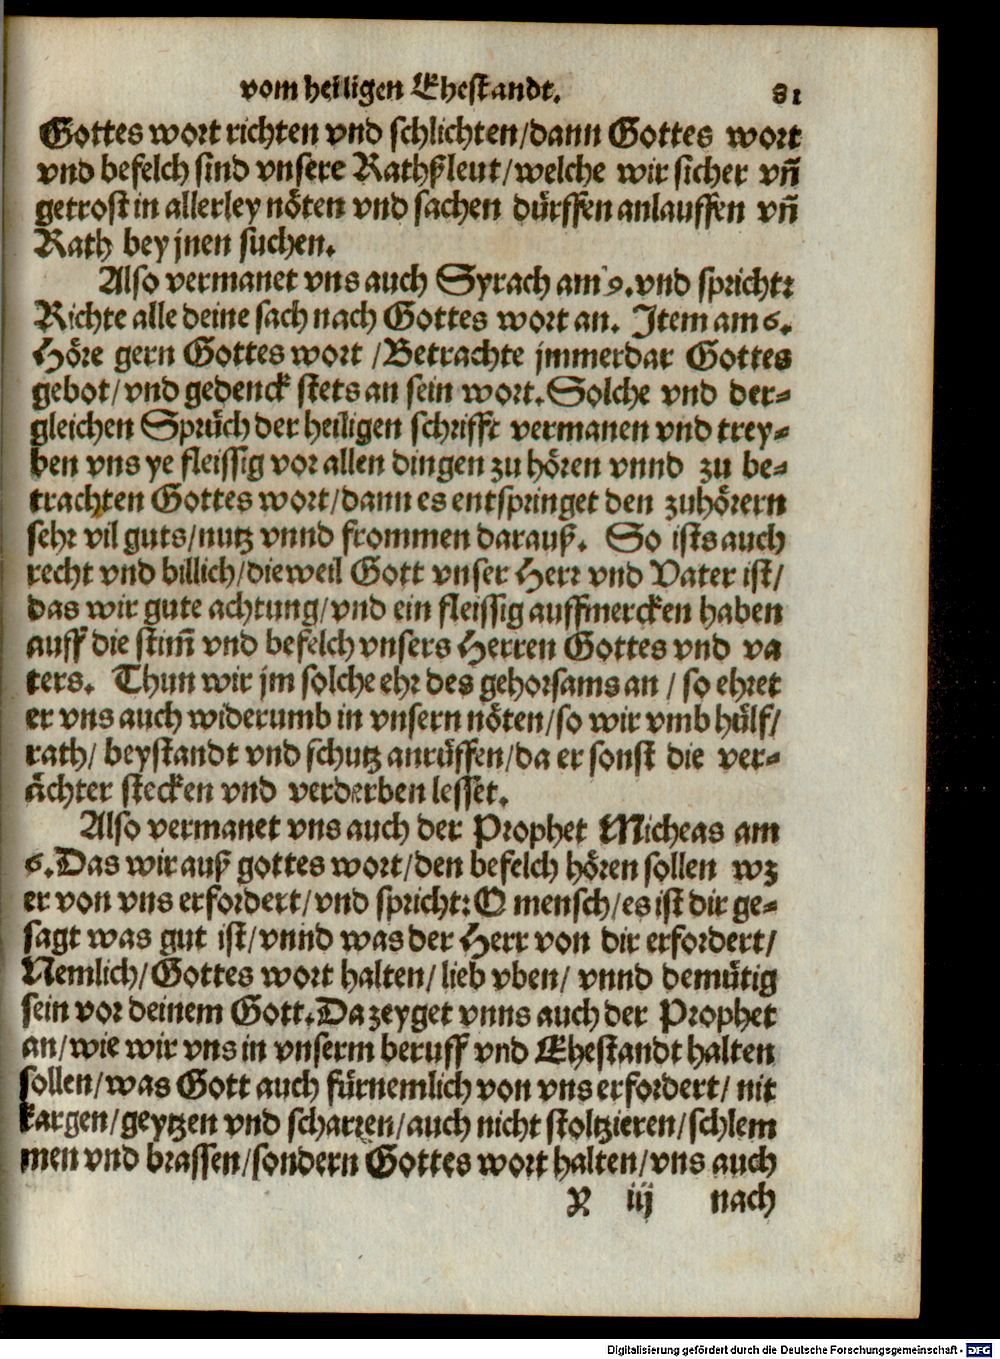 vom heiligen Ehestandt. 81
Gottes wort richten vnd schlichten/dann Gottes wort
vnd befelch sind vnsere Rathßleut/welche wir sicher vn̄
getrost in allerley nöten vnd sachen dürffen anlauffen vn̄
Rath bey jnen suchen.
Also vermanet vns auch Syrach am 9. vnd spricht:
Richte alle deine sach nach Gottes wort an. Item am 6.
Höre gern Gottes wort /Betrachte jmmerdar Gottes
gebot/vnd gedenck stets an sein wort. Solche vnd der-
gleichen Sprüch der heiligen schrifft vermanen vnd trey-
ben vns ye fleissig vor allen dingen zu hören vnnd zu be-
trachten Gottes wort/dann es entspringet den zuhörern
sehr vil guts/nutz vnnd frommen darauß. So ists auch
recht vnd billich/dieweil Gott vnser Herr vnd Vater ist/
das wir gute achtung/vnd ein fleissig auffmercken haben
auff die stim̄ vnd befelch vnsers Herren Gottes vnd va
ters. Thun wir jm solche ehr des gehorsams an / so ehret
er vns auch widerumb in vnsern nöten/so wir vmb hülf/
rath/ beystandt vnd schutz anrüffen/da er sonst die ver-
ächter stecken vnd verderben lesset.
Also vermanet vns auch der Prophet Micheas am
6. Das wir auß gottes wort/den befelch hören sollen wz
er von vns erfordert/vnd spricht: O mensch/es ist dir ge-
sagt was gut ist/vnnd was der Herr von dir erfordert/
Nemlich/Gottes wort halten/lieb vben/ vnnd demütig
sein vor deinem Gott. Da zeyget vnns auch der Prophet
an/wie wir vns in vnserm beruff vnd Ehestandt halten
sollen/was Gott auch fürnemlich von vns erfordert/ nit
kargen/geytzen vnd scharren/auch nicht stoltzieren/schlem
men vnd brassen/sondern Gottes wort halten/vns auch
X iij nach
Digitalisierung gefördert durch die Deutsche Forschungsgemeinschaft - DFG